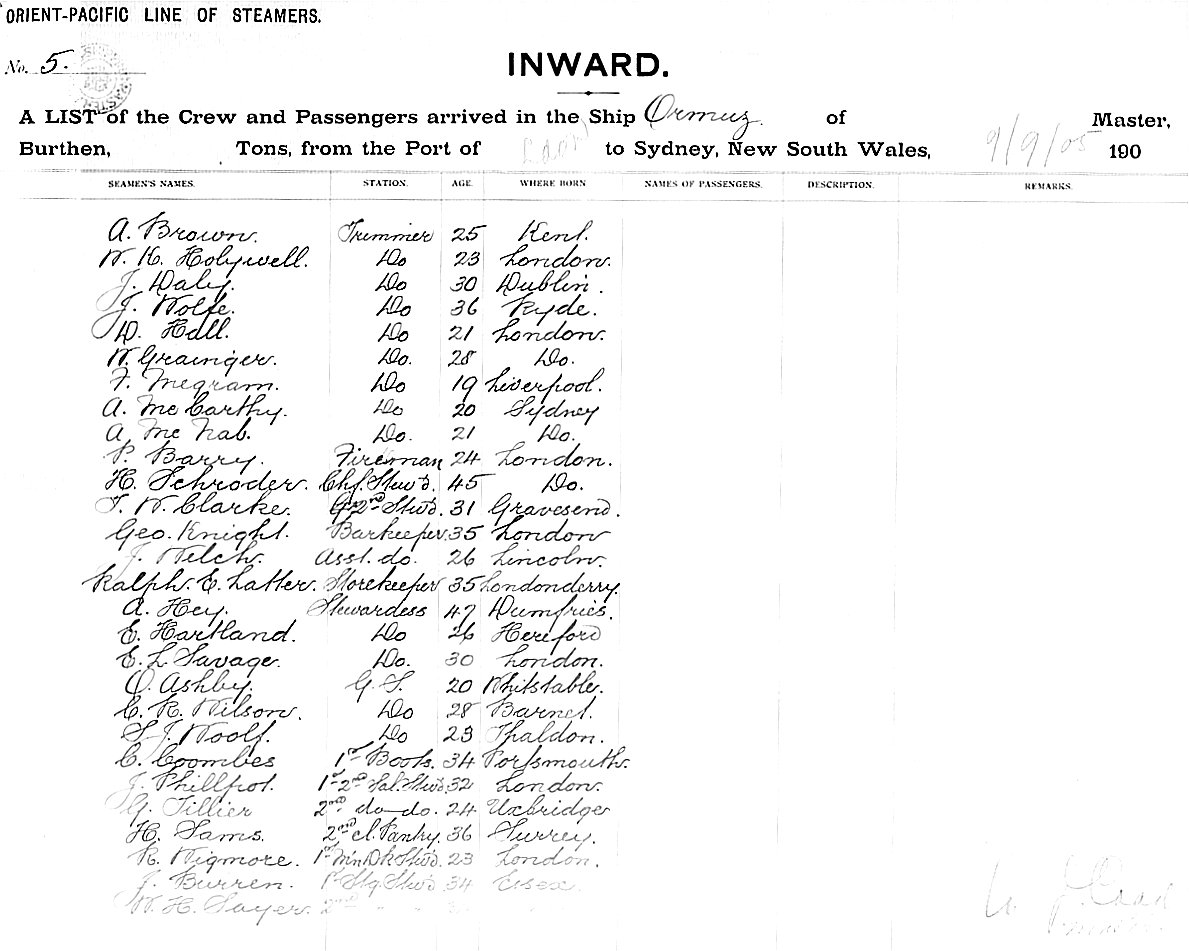 ORIENT-PACIFIC LINE OF STEAMERS.
No. 5.
INWARD.
A LIST of the Crew and Passengers arrived in the Ship Ormuz of Master,
Burthen, Tons, from the Port of to Sydney, New South Wales, 9/9/05 190
SEAMEN'S NAMES. STATION. AGE. WHERE BORN NAMES OF PASSENGERS. DESCRIPTION. REMARKS.
A. Brown. Trimmer 25 Kent.
W. H. Holywell. Do 23 London.
J. Daly. Do 30 Dublin.
J. Wolfe. Do 36 Ryde.
D. Hall. Do 21 London.
W. Grainger. Do. 28 Do.
F. Megram. Do 19 Liverpool.
A. McCarthy. Do 20 Sydney
A. McNab. Do. 21 Do.
P. Barry. Fireman 24 London.
H. Schroder. Chf. Stew'd. 45 Do.
T. W. Clarke. 2nd Stw'd. 31 Gravesend.
Geo. Knight. Barkeeper. 35 London
J. Welch. Asst. do. 26 Lincoln.
Ralph. E. Latter. Storekeeper 35 Londonderry.
A. Hey. Stewardess 47 Dumfries.
E. Hartland. Do 26 Hereford
E. L. Savage. Do. 30 London.
O. Ashby. G. S. 20 Whitstable.
C. R. Wilson. Do 28 Barnet.
S. J. Woolf. Do 23 Thaldon.
C. Coombes 1st Boots. 34 Portsmouth.
J. Phillpot. 1st 2nd Sal. Stw'd. 32 London.
G. Tillier 2nd do do. 24 Uxbridge
H. Sams. 2nd cl. Pantry. 36 Surrey.
R. Wigmore. 1st Mn Dk Stw'd. 23 London.
J. Burren. 1st Stg. Stw'd 34 Essex.
W. H. Sayer. 2nd
J. Coad